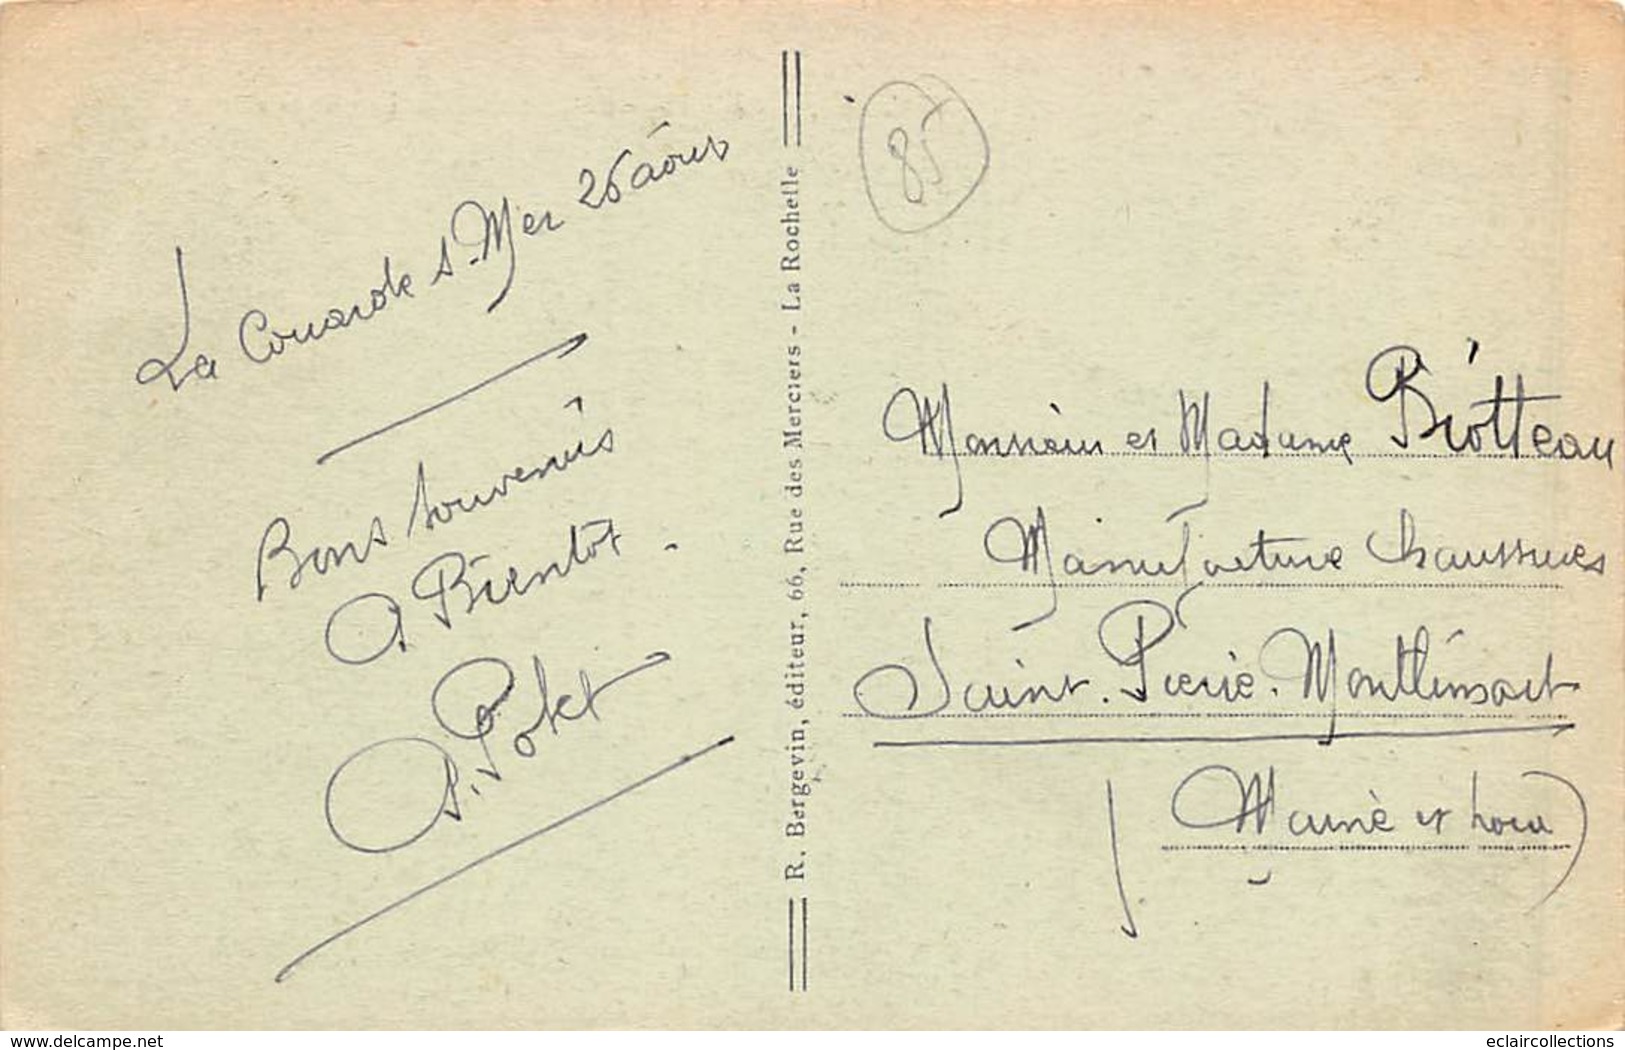 La Couarde s-Mer 26 août
Bons souvenirs
A Bientôt.
85
R. Bergevin, éditeur, 66, Rue des Merciers - La Rochelle
Monsieur et Madame Biotteau
Manufacture Chaussures
Saint-Pierre-Montlimart
(Maine et Loire)
www.delcampe.net
eclaircollections